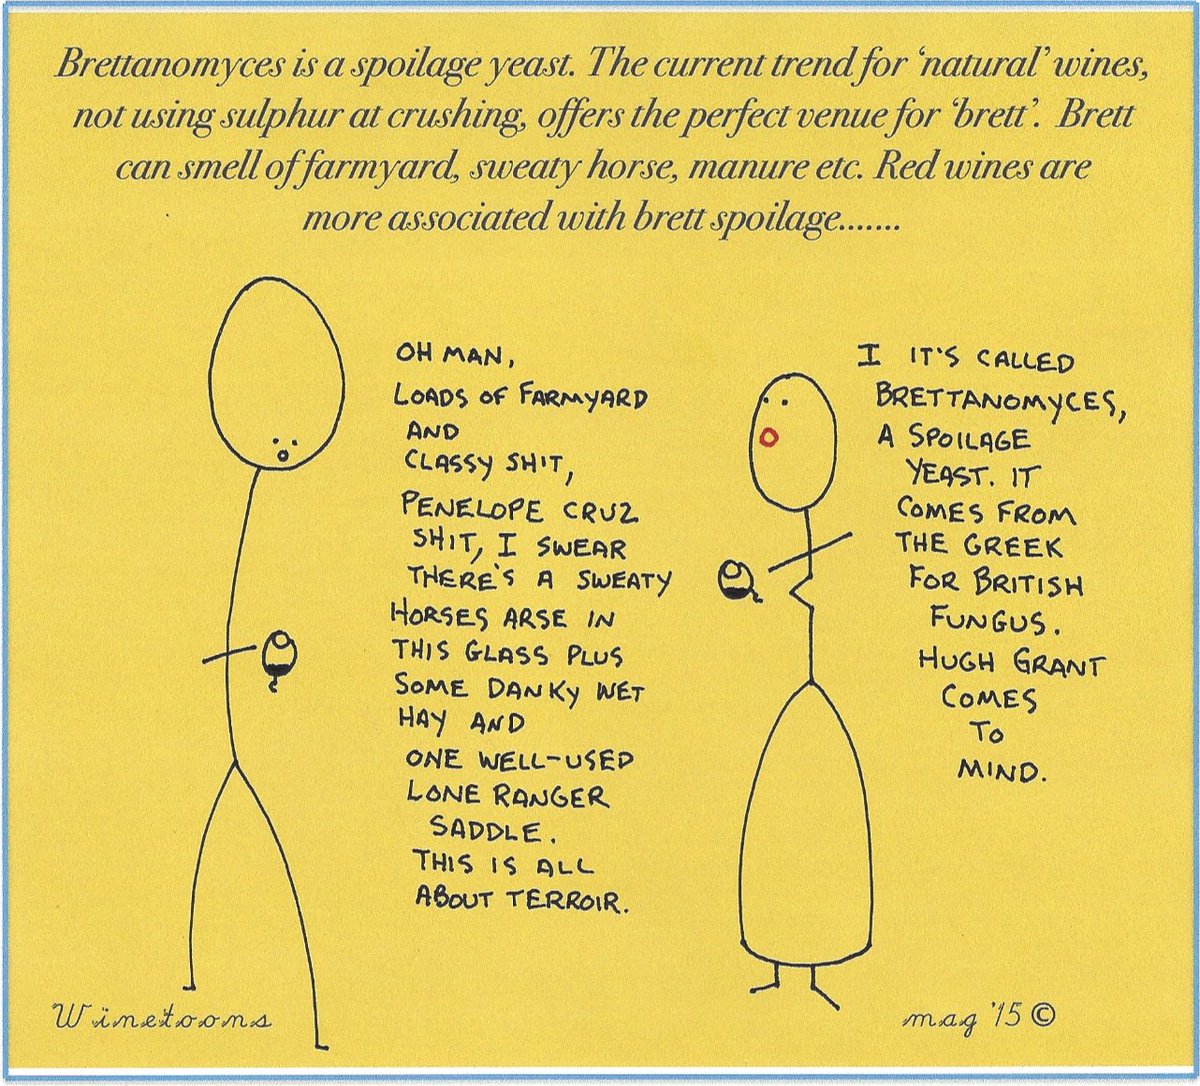 Brettanomyces is a spoilage yeast. The current trend for ‘natural’ wines,
not using sulphur at crushing, offers the perfect venue for ‘brett’. Brett
can smell of farmyard, sweaty horse, manure etc. Red wines are
more associated with brett spoilage.......
OH MAN,
LOADS OF FARMYARD
AND
CLASSY SHIT,
PENELOPE CRUZ
SHIT, I SWEAR
THERE'S A SWEATY
HORSES ARSE IN
THIS GLASS PLUS
SOME DANKY WET
HAY AND
ONE WELL-USED
LONE RANGER
SADDLE.
THIS IS ALL
ABOUT TERROIR.
I IT'S CALLED
BRETTANOMYCES,
A SPOILAGE
YEAST. IT
COMES FROM
THE GREEK
FOR BRITISH
FUNGUS.
HUGH GRANT
COMES
TO
MIND.
Winetoons
mag '15 ©